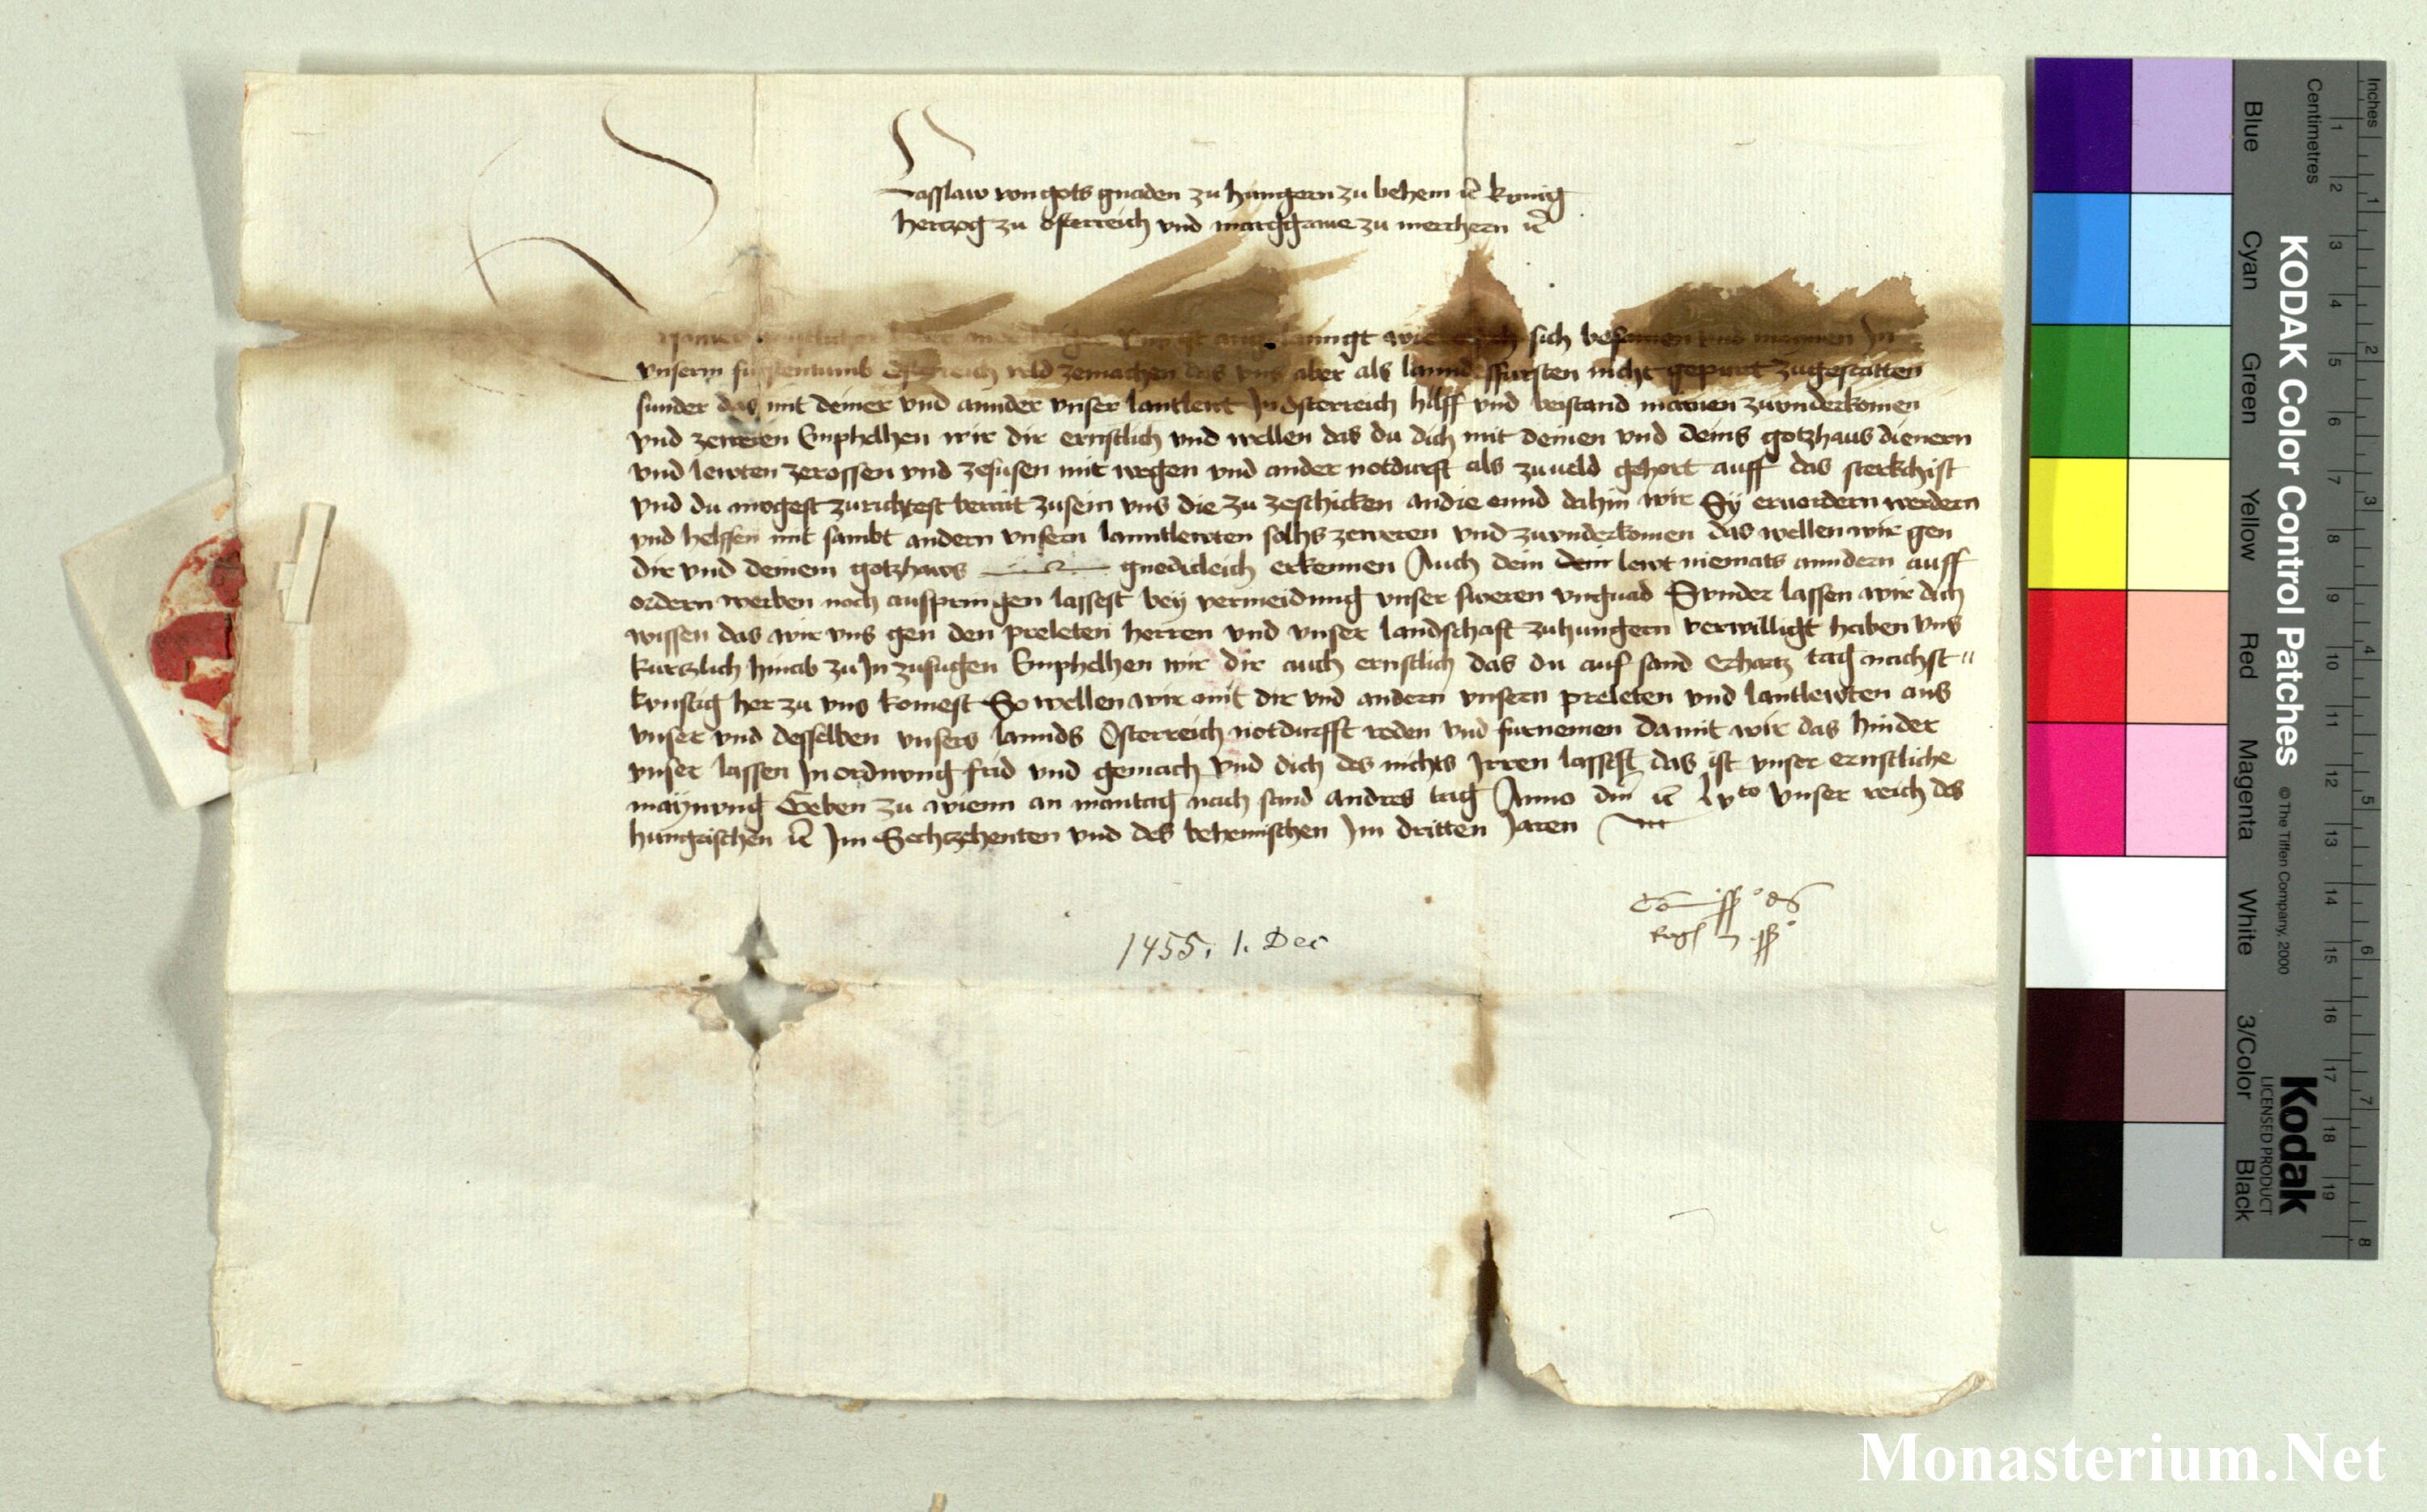 Lasslaw von gots gnaden zu hungern zu behem etc kunig
hertzog zu osterreich vnd marggraue zu merrhern etc
langt wie sich sich besamen vnd mainen In
vnserm furstentumb Osterreich veld zemachen das vns aber als lanndsffursten nicht gepurt zugestatten
sunder das mit deiner vnd annder vnser lantlewt In Osterreich hilff vnd beistand mainen zuunderkomen
vnd zeweren Emphelhen wir dir ernstlich vnd wellen das du dich mit deinen vnd deins gotzhaus dienern
vnd lewten zerossen vnd zefussen mit wegen vnd ander notdurft als zu veld gehort auff das sterkchist
vnd du mogest zurichtest bereit zusein vns die zu zeschicken an die ennd dahin wir Sy eruordern werdern
vnd helffen mit sambt andern vnsern lanntlewten solhs zeweren vnd zuunderkomen das wellen wir gen
dir vnd deinem gotzhaws gnedicleich erkennen Auch dein dein lewt niemats anndern auff
ordern werben noch auspringen lassest bey vermeidung vnser sweren vngnad Sunder lassen wir dich
wissen das wir vns gen den preleten herren vnd vnser landschaft zu hungern verwilligt haben vns
kurtzlich hinab zu In zufugen Emphelhen wir dir auch ernstlich das du auf sand Erhartz tag nachst
kunftig her zu vns komest So wellen wir mit dir vnd andern vnsern preleten vnd lantlewten aus
vnser vnd desselben vnsers lannds Osterreich notdurfft reden vnd furnemen damit wir das hinder
vnser lassen In ordnung frid vnd gemach vnd dich des nichts Irren lassest das ist vnser ernstliche
maynung Geben zu wienn an mantag nach sand Andres tag Anno dm etc lvto vnser reich des
hungrischen etc Im Sechtzehenten vnd des behemischen Im dritten Jaren
1455. 1. Dec
KODAK Color Control Patches
© The Tiffen Company, 2000
Kodak
LICENSED PRODUCT
Inches
Centimetres
1 2 3 4 5 6 7 8
1 2 3 4 5 6 7 8 9 10 11 12 13 14 15 16 17 18 19
Blue
Cyan
Green
Yellow
Red
Magenta
White
3/Color
Black
Monasterium.Net